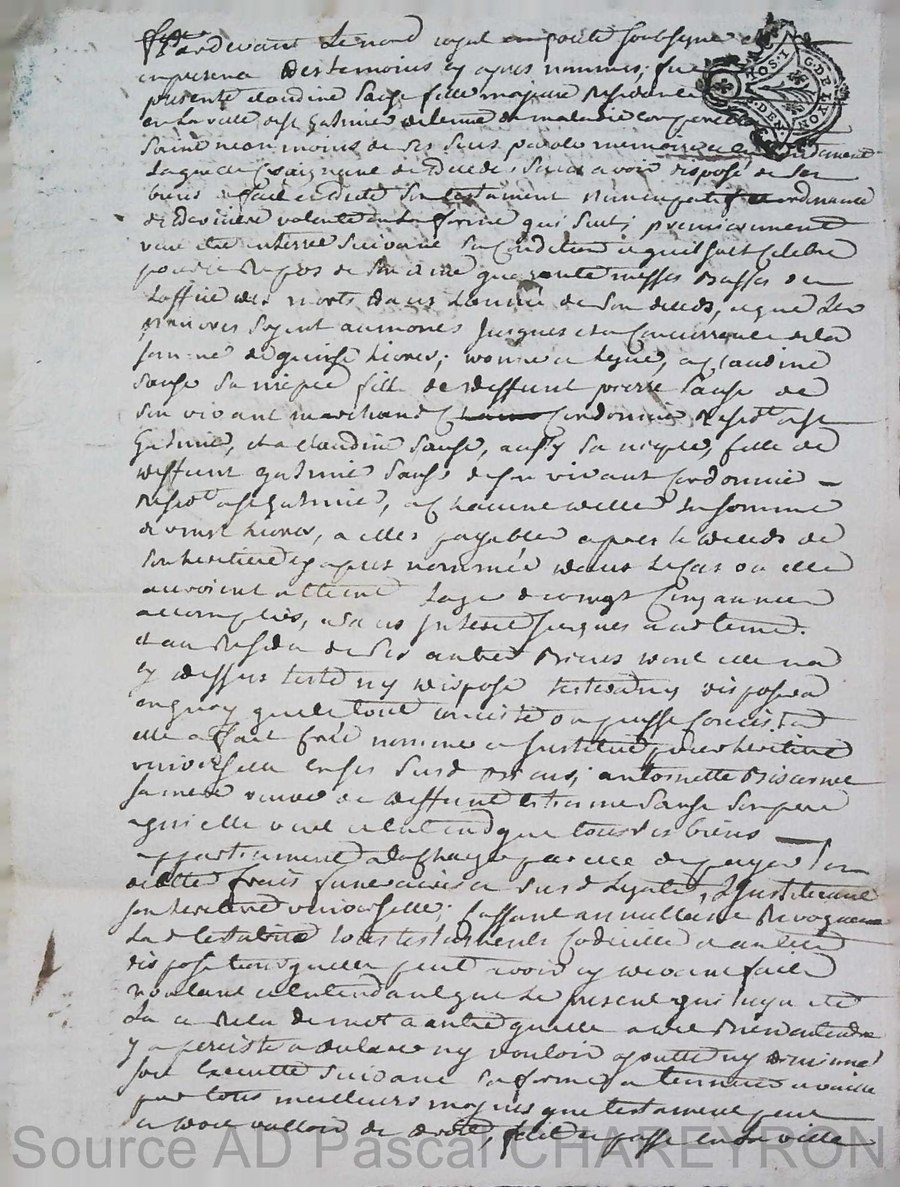 Pardevant Le nore royal soubsigne
en presence des temoins cy apres nommes, fut
presente claudine Sauze fille majeure Residante
en La ville de st galmier detenue de maladie corporelle
Saine neanmoins de ses sens parole memoire et entendement
Laquelle craignant de deceder sans avoir disposé de ses
biens a fait et dicté Son testament nuncupatif et ordonnance
de derniere volonté en La forme qui suit, premierement
veut etre enterrée suivant Sa Condition et quil soit Celebré
pour le Repos de Son ame quarante messes Basses ou
Loffice des morts dans Lannée de Son deceds, et que Les
pauvres Soyent aumonés jusques et a Concurrence de la
somme de quinze Livres; donne et legue, a Claudine
Sauze Sa niepce fille de deffunt pierre Sauze de
Son vivant marchand Cordonnier Residt a st
Galmier, et a claudine Sauze, aussy Sa niepce, fille de
deffunt galmier Sauze de Son vivant Cordonnier
Residt a st galmier, a Chacune delles La somme
de vingt Livres, a elles payable apres le deceds de
Son heritiere cy apres nommée dans Le cas ou elles
auroient atteint Lage de vingt Cinq années
accomplies, et Sans Interest jusques audt terme.
et au Residu de Ses autres Biens dont elle na
cy dessus testé ny disposé testera ny disposera
en quoy que le tout consiste ou puisse Consister
elle a fait Créé nommé et Institué pour heritiere
universelle en ses Susd Biens, antoinette
Sa mere veuve de deffunt estienne Sauze Son pere
a qui elle veut et entend que tous ses biens
appartiennent a la Charge par elle de payer Ses
dettes frais funeraires et Susd Legats, Linstituant
Son heritiere universelle; Cassant annullant et Revoquant
Lad testatrice tous testaments Codicilles et autres
dispositions quelle peut avoir cy devant faite
voulant et entendant que Le present qui luy a eté
Lu et Relu de mot a autre quelle a dit Bien entendre
y a persisté a declaré ny vouloir ajoutter ny diminuer
soit Executté Suivant Sa forme et teneur et vaille
par tous meilleurs moyens que testament peut
et doit valloir de droit, fait et passé en La ville
G. DE LYON
Source AD Pascal CHAREYRON